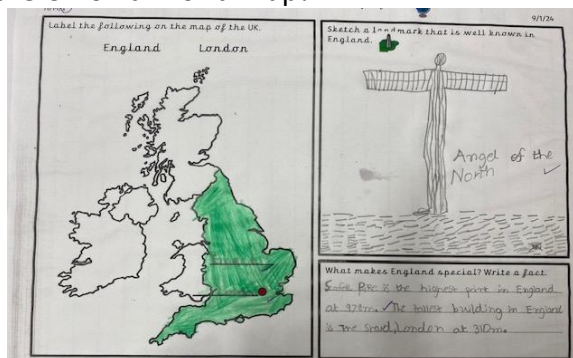 9/1/24
Label the following on the map of the UK.
England London
Sketch a landmark that is well known in
England.
Angel of the
North
What makes England special? Write a fact.
is the highest point in England
at 978m. The tallest building in England
is the Shard, London at 310m.